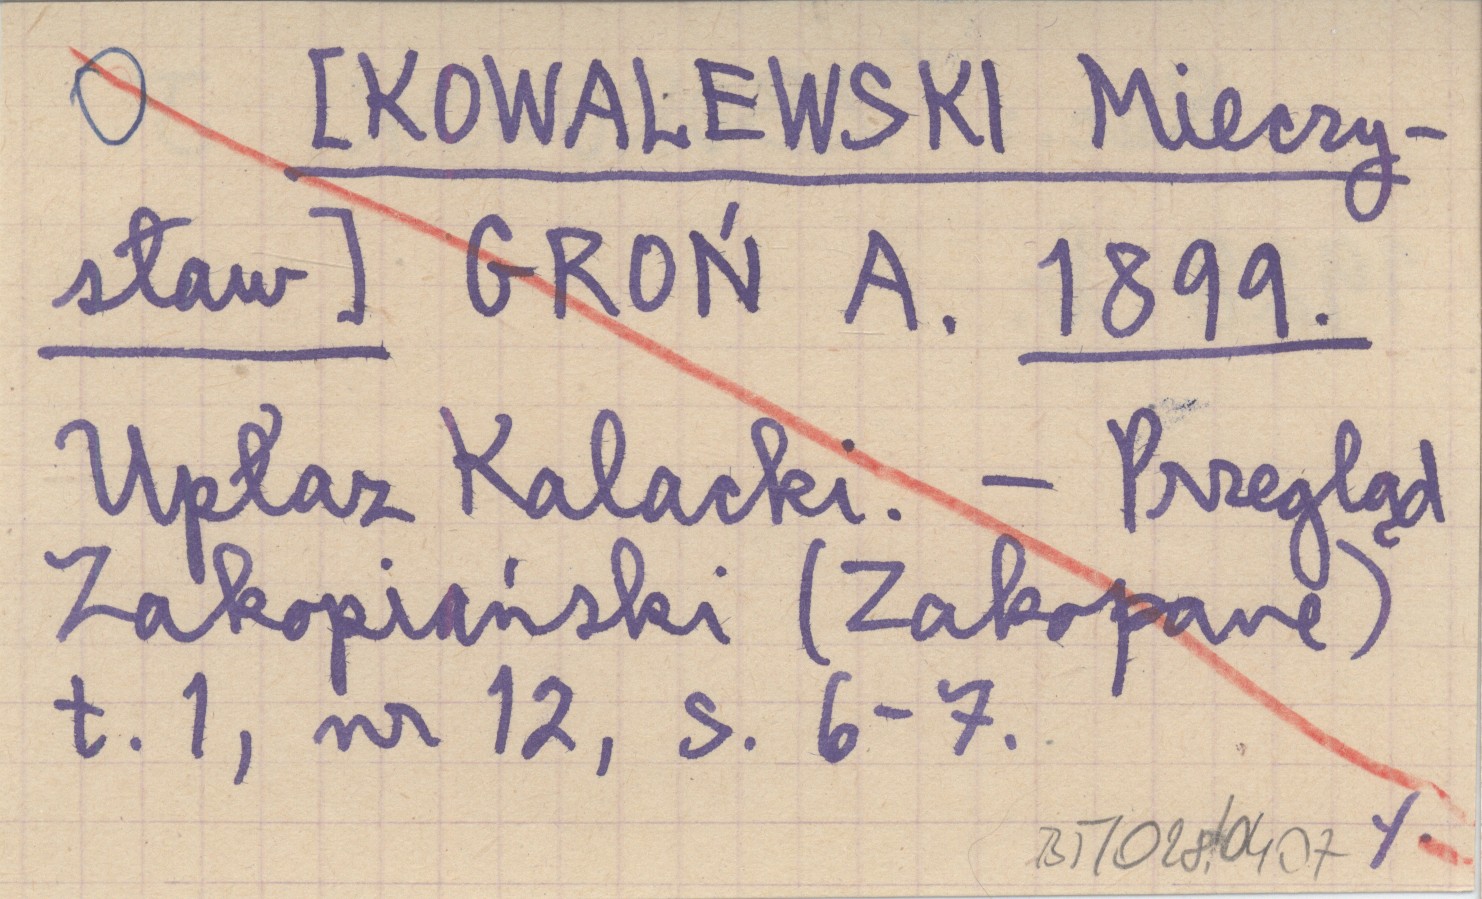 [KOWALEWSKI Mieczy-
sław] GROŃ A. 1899.
Upłaz Kalacki. – Przegląd
Zakopiański (Zakopane)
t. 1, nr 12, s. 6-7.
Y.